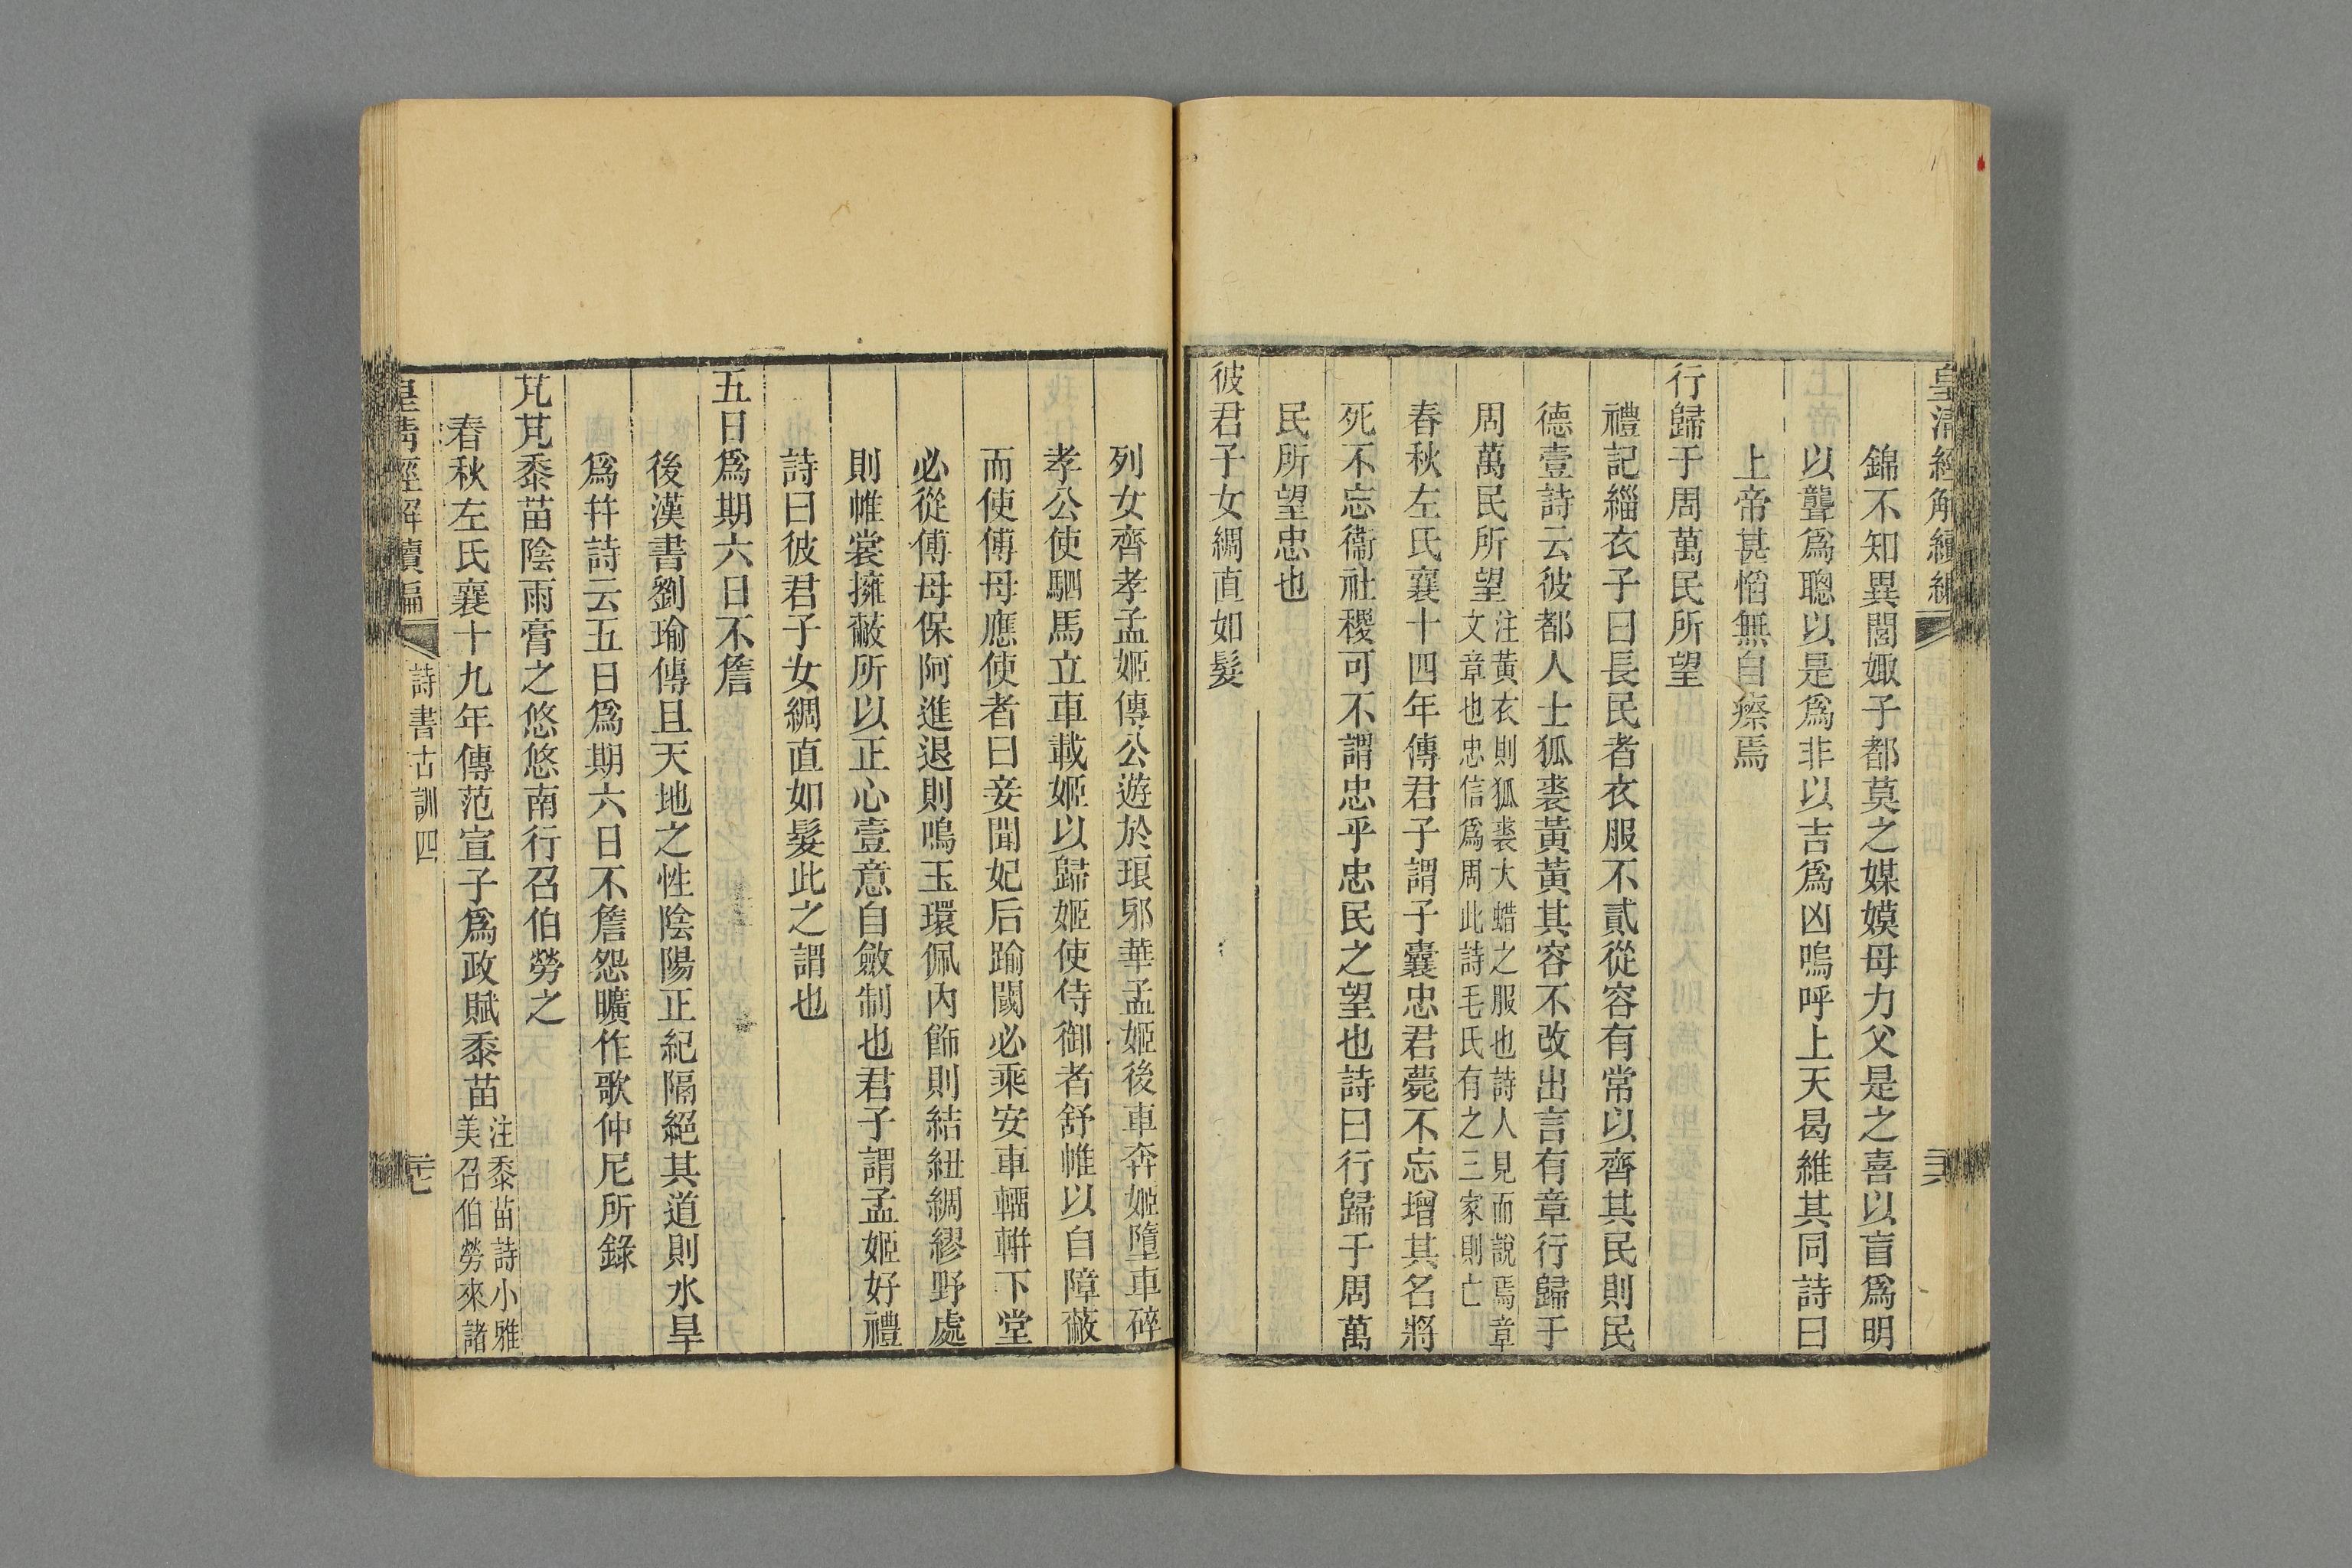 皇清經解續編
錦不知異閭娵子都莫之媒嫫母力父是之喜以盲爲明
以聾爲聰以是爲非以吉爲凶嗚呼上天曷維其同詩曰
上帝甚慆無自瘵焉
行歸于周萬民所望
禮記緇衣子曰長民者衣服不貳從容有常以齊其民則民
德壹詩云彼都人士狐裘黃黃其容不改出言有章行歸于
周萬民所望注黃衣則狐裘大蜡之服也詩人見而說焉章
文章也忠信爲周此詩毛氏有之三家則亡
春秋左氏襄十四年傳君子謂子囊忠君薨不忘增其名將
死不忘衞社稷可不謂忠乎忠民之望也詩曰行歸于周萬
民所望忠也
彼君子女綢直如髮
列女齊孝孟姬傳公遊於琅邪華孟姬後車奔姬墮車碎
孝公使駟馬立車載姬以歸姬使侍御者舒帷以自障蔽
而使傅母應使者曰妾聞妃后踰閾必乘安車輜軿下堂
必從傅母保阿進退則鳴玉環佩內飾則結紐綢繆野處
則帷裳擁蔽所以正心壹意自斂制也君子謂孟姬好禮
詩曰彼君子女綢直如髮此之謂也
五日爲期六日不詹
後漢書劉瑜傳且天地之性陰陽正紀隔絕其道則水旱
爲幷詩云五日爲期六日不詹怨曠作歌仲尼所錄
芃芃黍苗陰雨膏之悠悠南行召伯勞之
春秋左氏襄十九年傳范宣子爲政賦黍苗注黍苗詩小雅
美召伯勞來諸
皇清經解續編
詩書古訓四